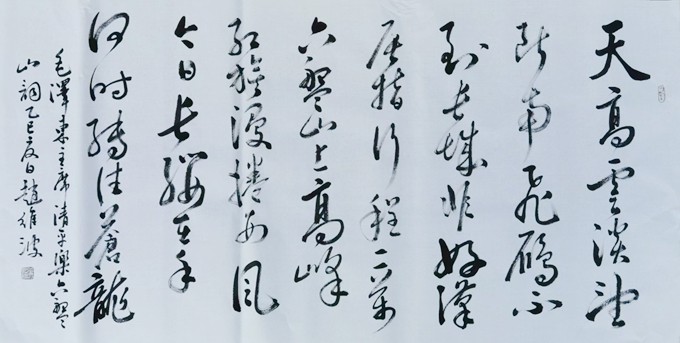 天高雲淡望
断南飛鴈不
到长城非好漢
屈指行程二萬
六盤山上高峰
红旗漫捲西風
今日长缨在手
何时縛住蒼龍
毛澤東主席清平樂六盤
山詞乙巳夏日趙維波